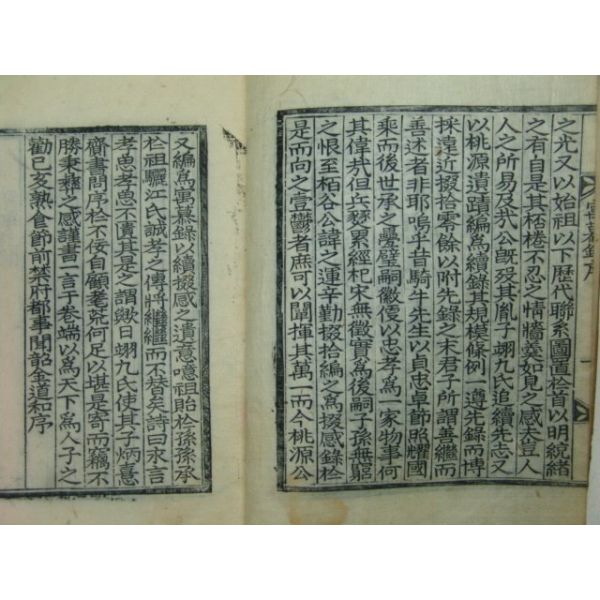 之光又以始祖以下歷代聯系圖置於首以明統緒
之有自是其桮棬不忍之情墻羹如見之感夫豈人
人之所易及我公旣歿其胤子翊九氏追續先志又
以桃源遺蹟編爲續錄其規模條例一遵先錄而博
採遠近掇拾零餘以附先錄之末君子所謂善繼而
善述者非耶嗚乎昔騎牛先生以貞忠卓節照耀國
乘而後世承之憂
嗣徽偉以忠孝爲一家物事何
其偉哉但兵燹累經杞宋無徵實爲後嗣子孫無窮
之恨至栢谷公諱之運辛勤掇拾編之爲掇感錄於
是而向之壹鬱者庶可以闡揮其萬一而今桃源公
又編爲寓慕錄以續掇感之遺意噫祖貽於孫孫承
於祖驪江氏誠孝之傳將繼繼而不替矣詩曰永言
孝思孝思不匱其是之謂歟日翊九氏使其子炳憙
齎書問序於不佞自顧耄荒何足以堪是寄而竊不
勝秉彝之感謹書一言于卷端以爲天下爲人子之
勸己亥熱食節前禁府都事聞韶金道和序